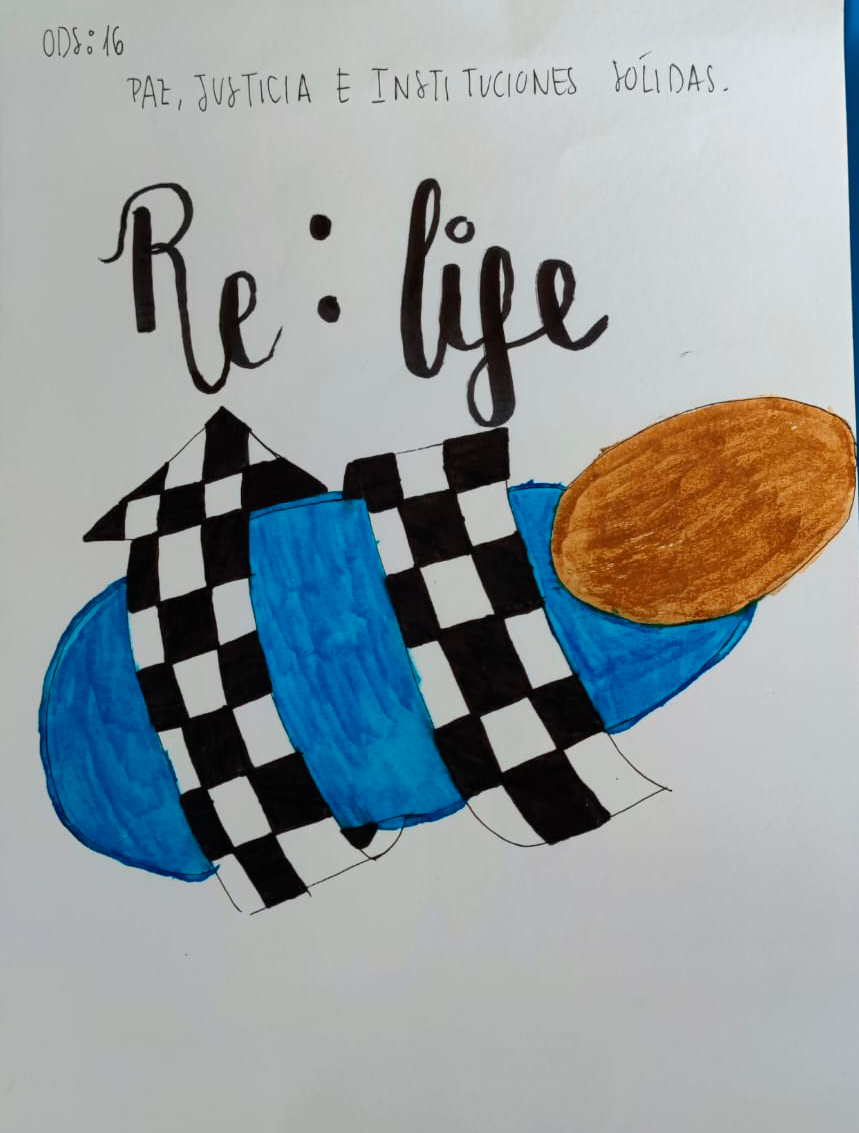 ODS: 16
PAZ, JUSTICIA E INSTITUCIONES SÓLIDAS.
Re: life